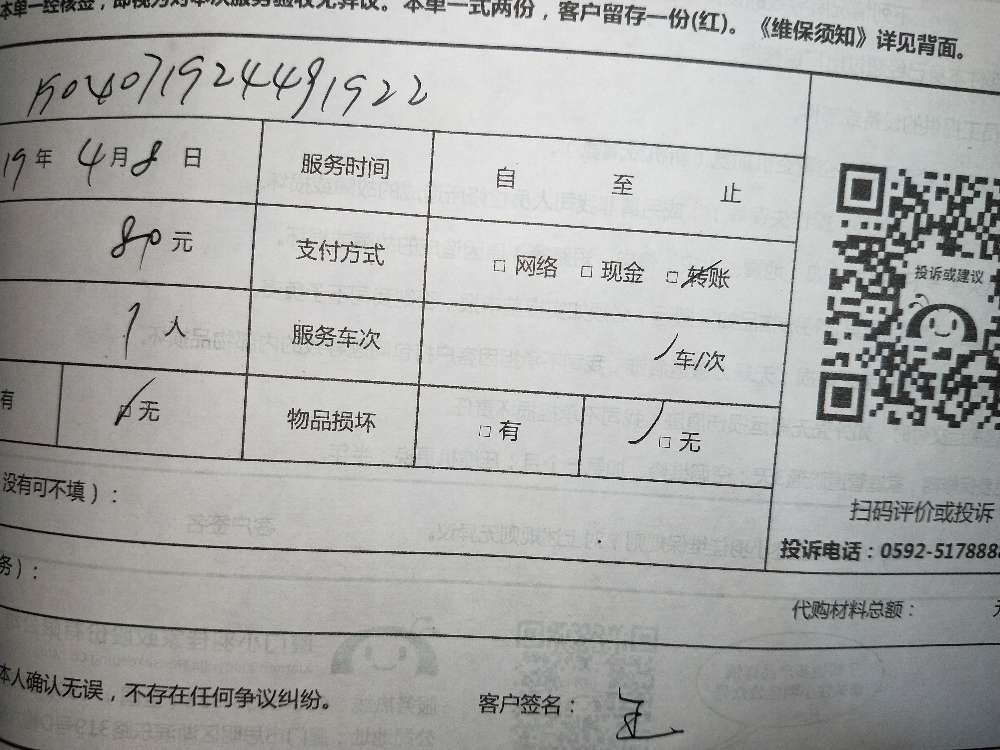 本单一经核签，即视为对本次服务验收无异议。本单一式两份，客户留存一份(红)。《维保须知》详见背面。
19年 4月8日 服务时间 自 至 止
80元 支付方式 □ 网络 □ 现金 □ 转账
1人 服务车次 车/次
有 □ 无 物品损坏 □ 有 □ 无
投诉或建议
没有可不填）：
扫码评价或投诉
投诉电话：0592-5178888
务）：
代购材料总额：
本人确认无误，不存在任何争议纠纷。 客户签名：